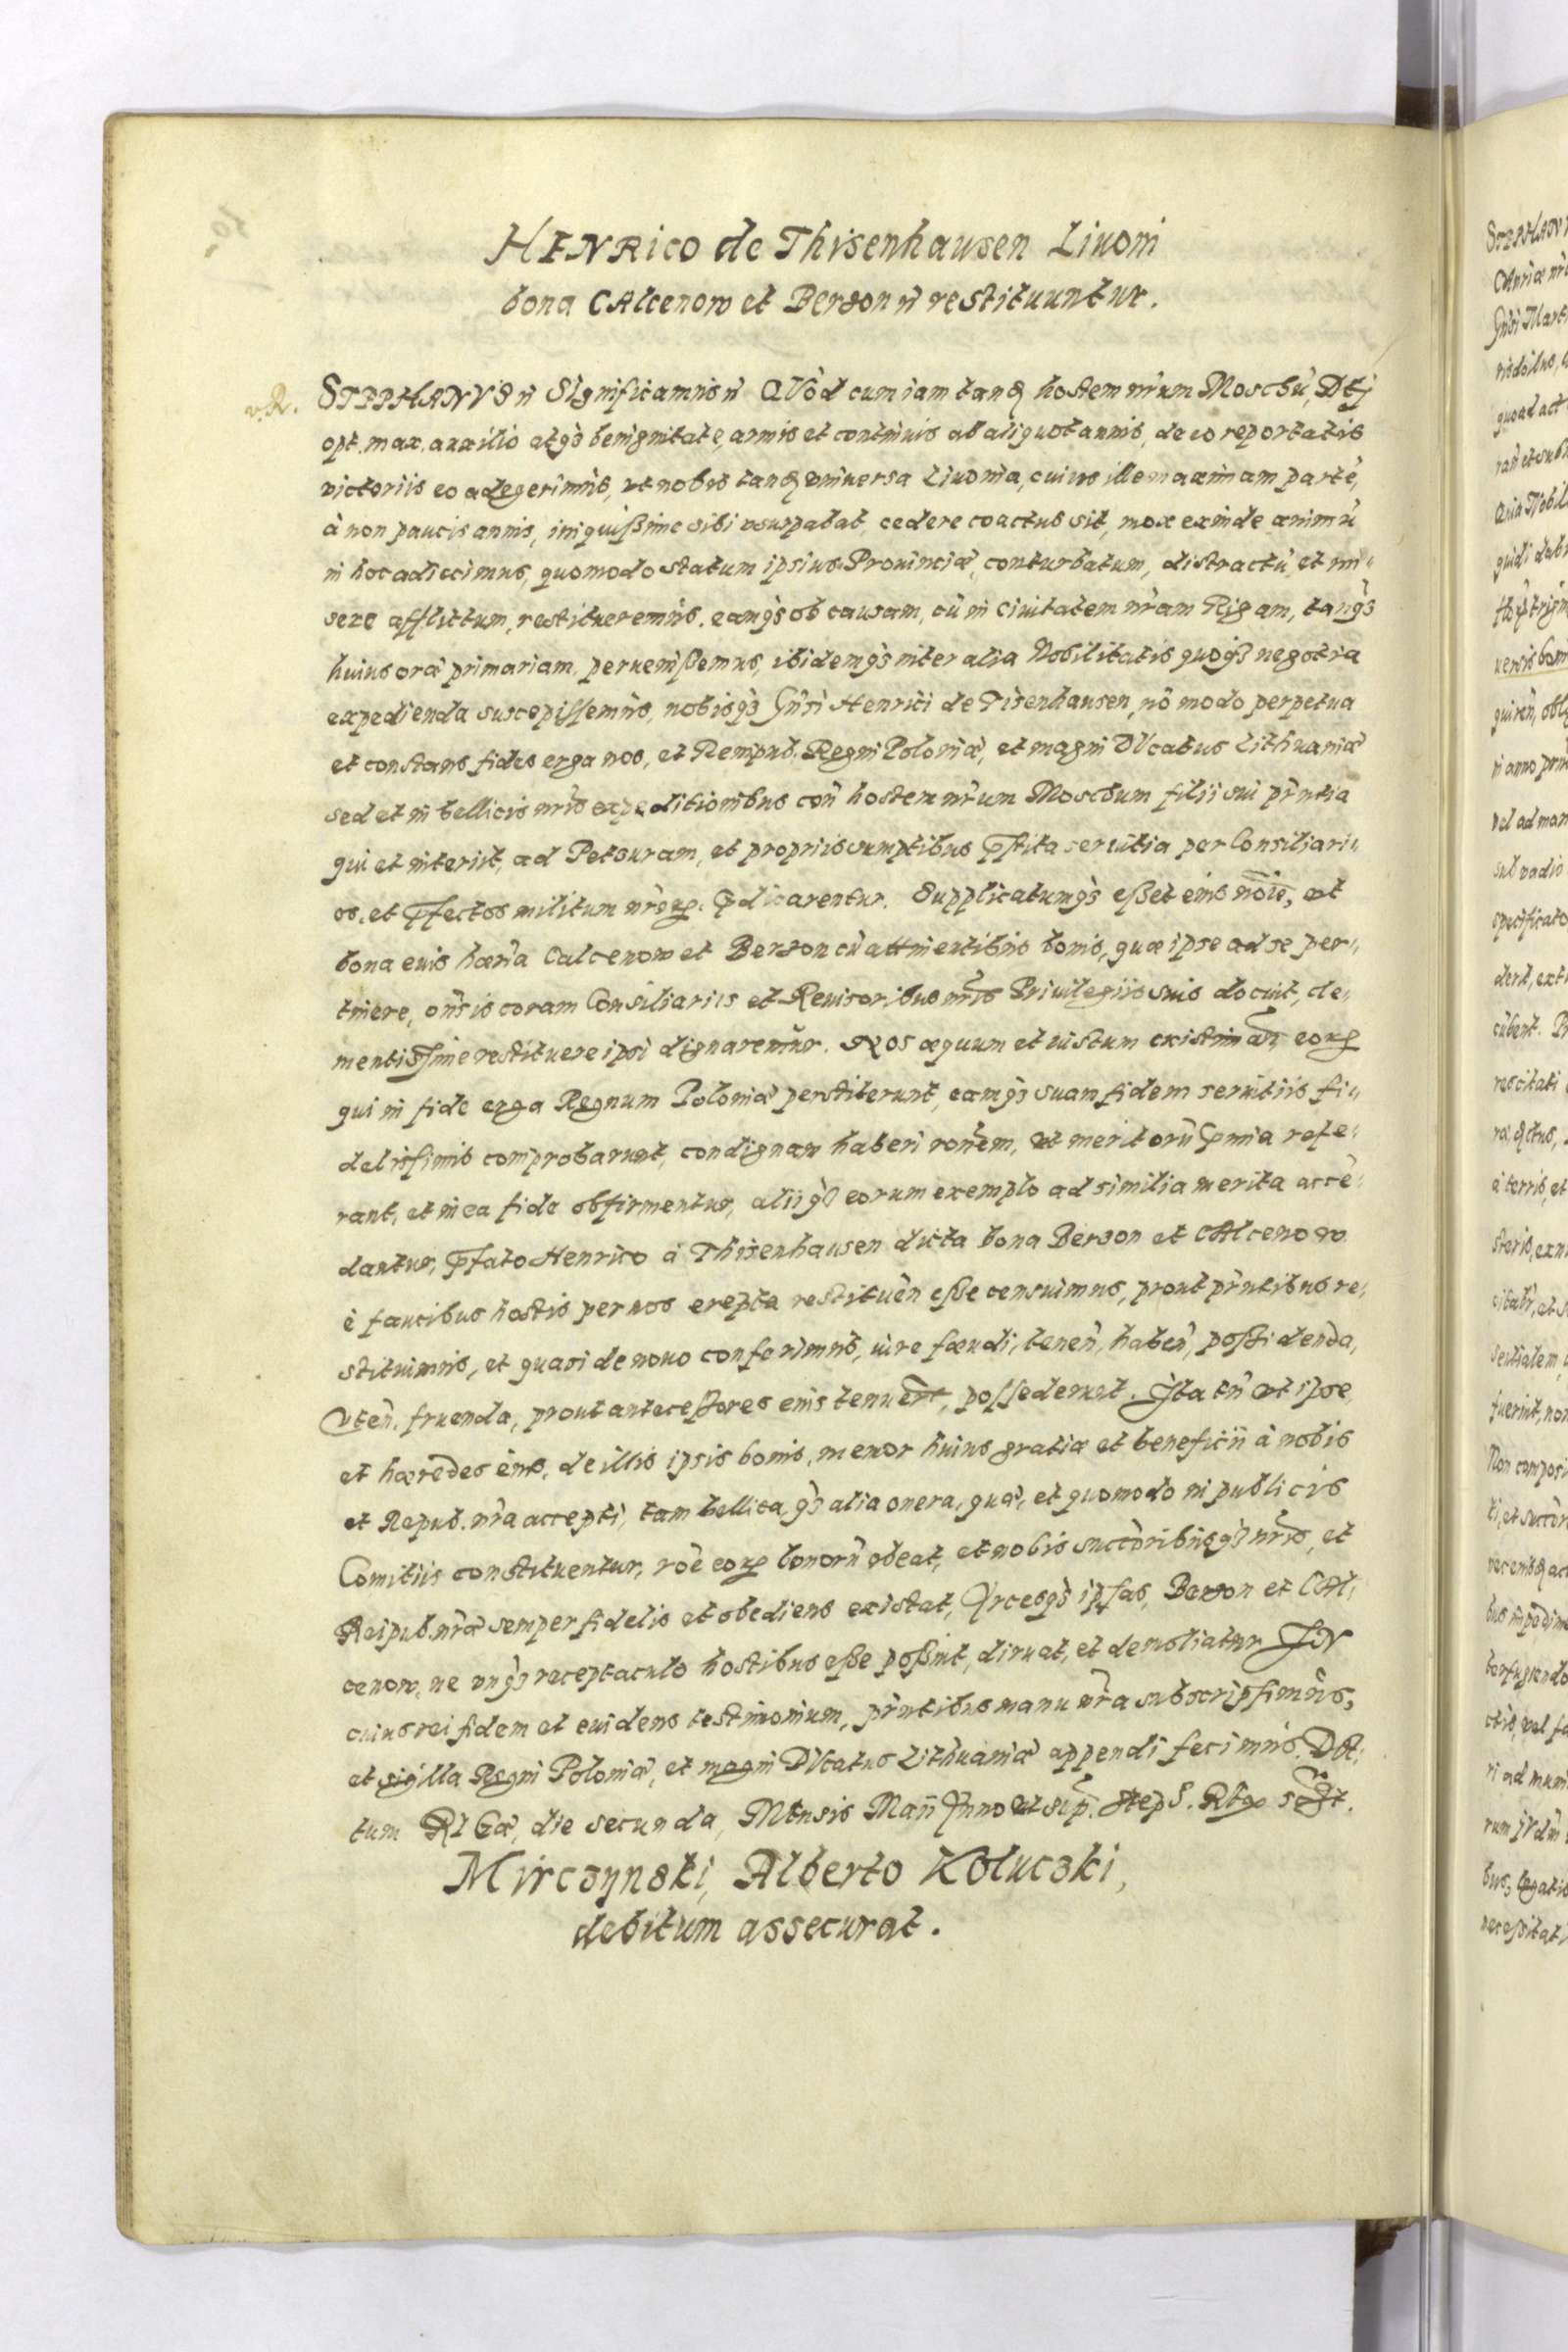 HENRico de Thisenhausen Livoni
bona CAlcenow et Berzon ñ restituuntur.
STEPHANVS ñ Significamus ñ QVòd cum iam tandẽ hostem nr̃um Moschũ, DEj
opt. max. auxilio atq̃ȝ benignitate, armis et continuis ab aliquot annis, de eo reportatis
victoriis eo adegerimus, vt nobis tandẽ vniuersa Liuonia, cuius ille maximam partẽ,
à non paucis annis, iniquißime sibi vsurpabat, cedere coactus sit, mox exinde animũ
in hoc adiecimus, quomodo statum ipsius Prouinciæ, conturbatum, distractũ, et mi„
sere afflictum, restitueremus. eamq̃ȝ ob causam, cũ in Ciuitatem nr̃am Rigam, tanq̃ȝ
huius oræ primariam, peruenißemus, ibidemq̃ȝ inter alia Nobilitatis quoq̃ȝ negotia
expedienda suscepissemus, nobisq̃ȝ Gn̄si Henrici de Tisenhausen, nõ modo perpetua
et constans fides erga nos, et Rempub. Regni Poloniæ, et magni DVcatus Lithuaniæ
sed et in bellicis nr̃is expeditionibus con̄ hostem nr̃um Moschum filij sui pr̃ntia
qui et interiit, ad Petzuram, et propriis sumptibus p̃stita seruitia per Consiliari„
os, et p̃fectos militum nr̃oꝝ. p̃dicarentur. Supplicatumq̃ȝ eßet eius noĩe, vt
bona euis hær̃ia Calcenow et Berzon cũ attinentibus bonis, quæ ipse ad se per„
tinere, on̄sis coram Consiliariis et Reuisoribus nr̃is Priuilegiis suis docuit, cle„
mentissime restituere ipsi dignaremur. NOS æquum et iustum existimañ eoꝝ
qui in fide erga Regnum Poloniæ perstiterunt, eamq̃ȝ suam fidem seruitiis fi„
delissimis comprobarunt, condignam haberi ron̄em, vt meritorũ p̃mia refe„
rant, et in ea fide obfirmentur, aliiq̃ȝ eorum exemplo ad similia merita accẽ„
dantur, p̃fato Henrico à Thisenhausen dicta bona Berzon et CAlcenow
è faucibus hostis per nos erepta restituẽn eße censuimus, prout pr̃ntibus re„
stituimus, et quasi de nouo conferimus, iure fæudi, tenen̄, haben̄, possidenda,
Vten̄. fruenda, prout anteceßores eius tenuer̃t, possederunt. Ita tñ vt ipse
et hæredes eius, de illis ipsis bonis, memor huius gratiæ et beneficii à nobis
et Repub. nr̃a accepti, tam bellica, q̃ȝ alia onera, quæ, et quomodo in publicis
Comitiis constituentur, roẽ eoꝝ bonorũ obeat, et nobis succõribusq̃ȝ nr̃is, et
Reipub. nr̃æ semper fidelis et obediens existat, Arcesq̃ȝ ipsas, Berzon et CAl„
cenow, ne vnq̃ȝ receptaculo hostibus eße poßint, diruat, et demoliatur. IN
cuius rei fidem et euidens testimonium, pr̃ntibus manu nr̃a subscripsimus,
et sigilla Regni Poloniæ, et magni DVcatus Lithuaniæ appendi fecimus. DA„
tum RIGæ, die secunda, MEnsis Maii Anno vt sup̃. StepS. REx sst.
Mirczynski, Alberto Koluczki,
debitum assecurat.